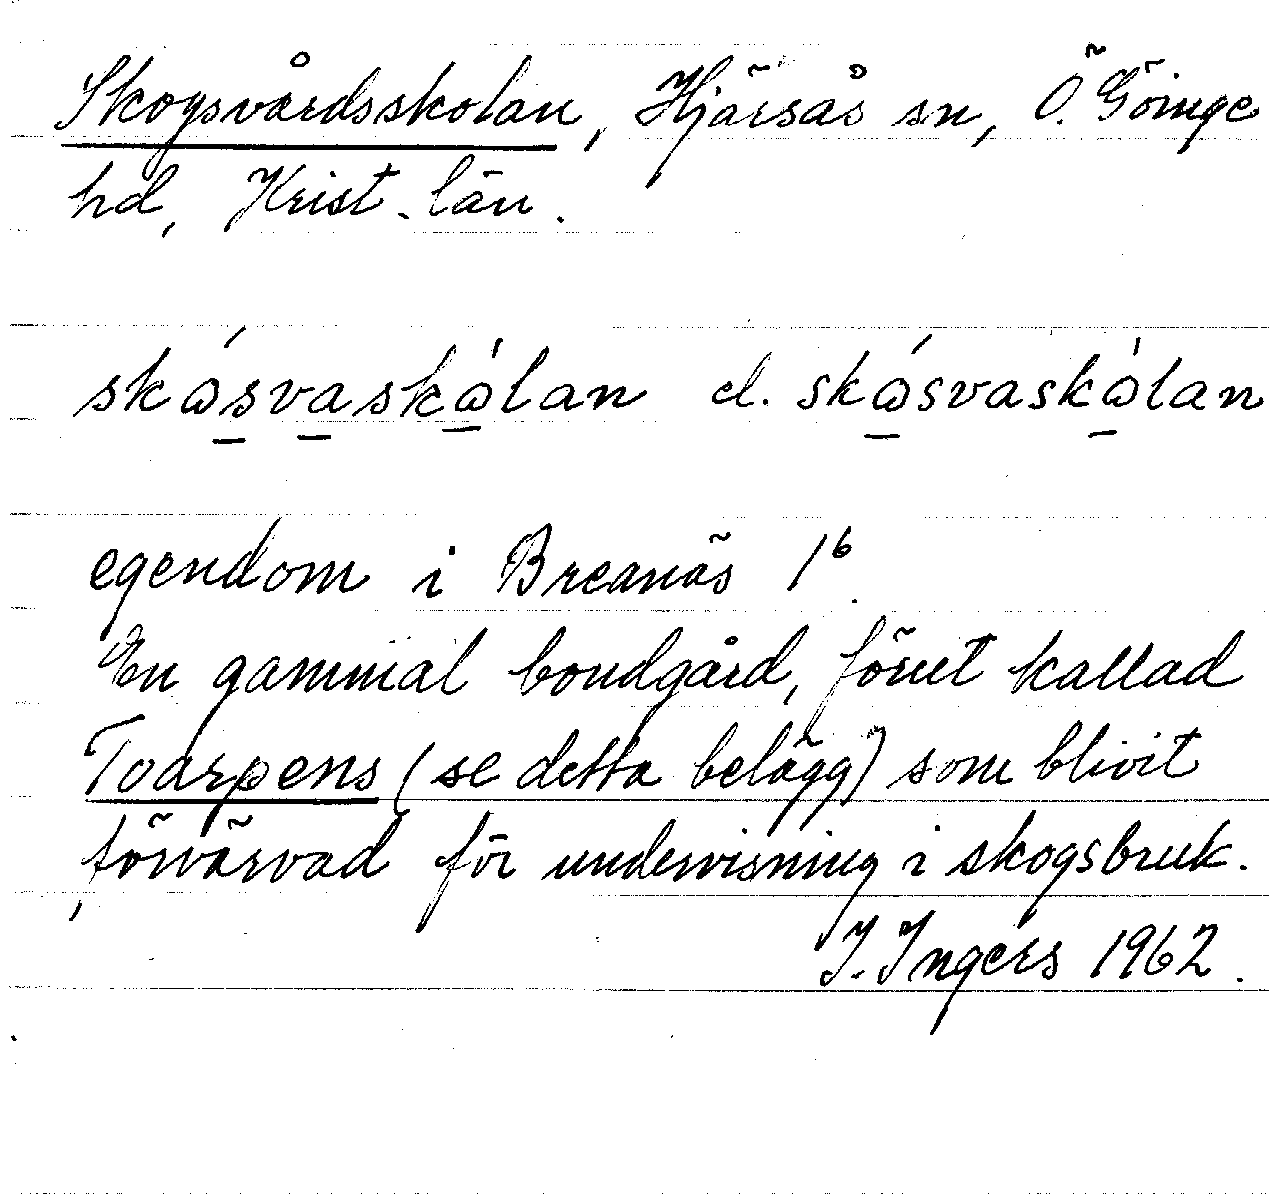 Skogsvårdsskolan, Hjärsås sn, Ö. Göinge
hd, Krist. län.
skɷ́svaskɷ̀lan el. skɷ́svaskɷ̀lan
egendom i Breanäs 1⁶.
En gammal bondgård, förut kallad
Toarpens (se detta belägg) som blivit
förvärvad för undervisning i skogsbruk.
I. Ingers 1962.